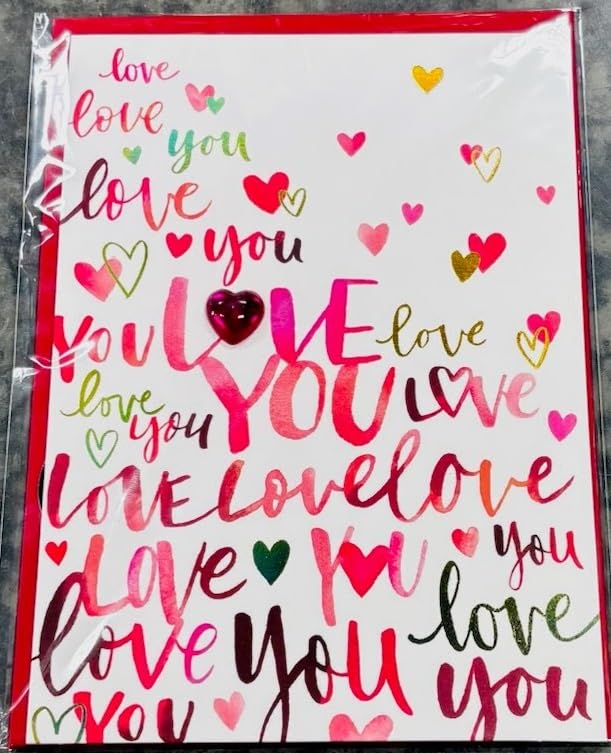 love
love
you
love
you
LOVE
YOU
love
love
YOU
LOVE
you
LOVE Love love
LOVE YOU
you
love you
love
YOU
you